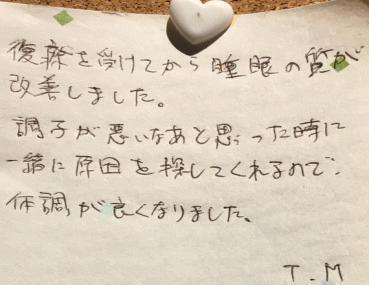 復療を受けてから睡眠の質が
改善しました。
調子が悪いなあと思った時に
一緒に原因を探してくれるので、
体調が良くなりました。
T.M